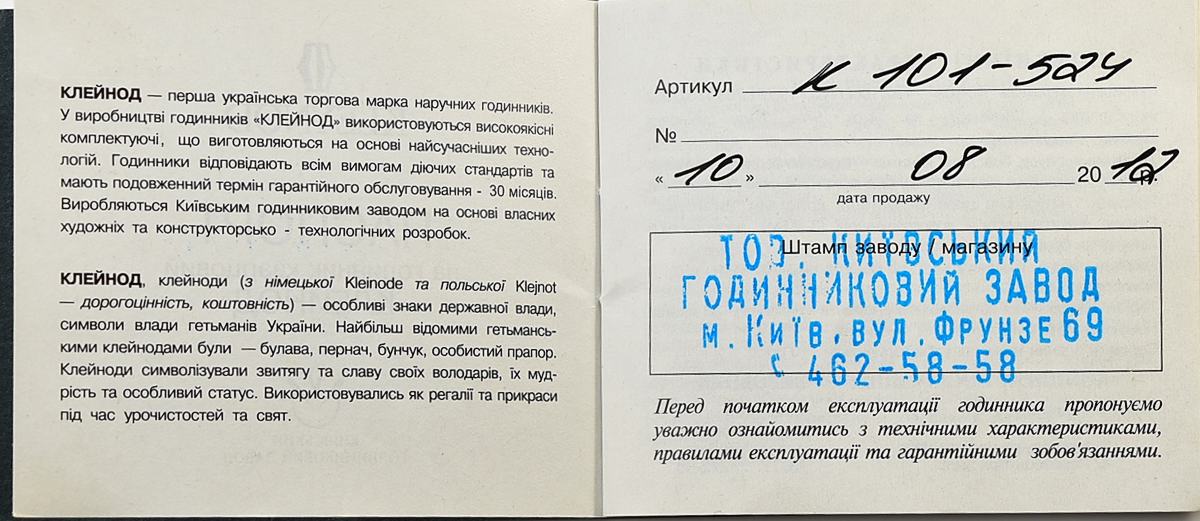 КЛЕЙНОД — перша українська торгова марка наручних годинників.
У виробництві годинників «КЛЕЙНОД» використовуються високоякісні
комплектуючі, що виготовляються на основі найсучасніших техно-
логій. Годинники відповідають всім вимогам діючих стандартів та
мають подовженний термін гарантійного обслуговування - 30 місяців.
Виробляються Київським годинниковим заводом на основі власних
художніх та конструкторсько - технологічних розробок.
КЛЕЙНОД, клейноди (з німецької Kleinode та польської Klejnot
— дорогоцінність, коштовність) — особливі знаки державної влади,
символи влади гетьманів України. Найбільш відомими гетьмансь-
кими клейнодами були — булава, пернач, бунчук, особистий прапор.
Клейноди символізували звитягу та славу своїх володарів, їх муд-
рість та особливий статус. Використовувались як регалії та прикраси
під час урочистостей та свят.
Артикул К 101-524
№
« 10 » 08 2012 р.
дата продажу
Штамп заводу / магазину
ТОВ. КИЇВСЬКИЙ
ГОДИННИКОВИЙ ЗАВОД
м. Київ. вул. Фрунзе 69
462-58-58
Перед початком експлуатації годинника пропонуємо
уважно ознайомитись з технічними характеристиками,
правилами експлуатації та гарантійними зобов'язаннями.